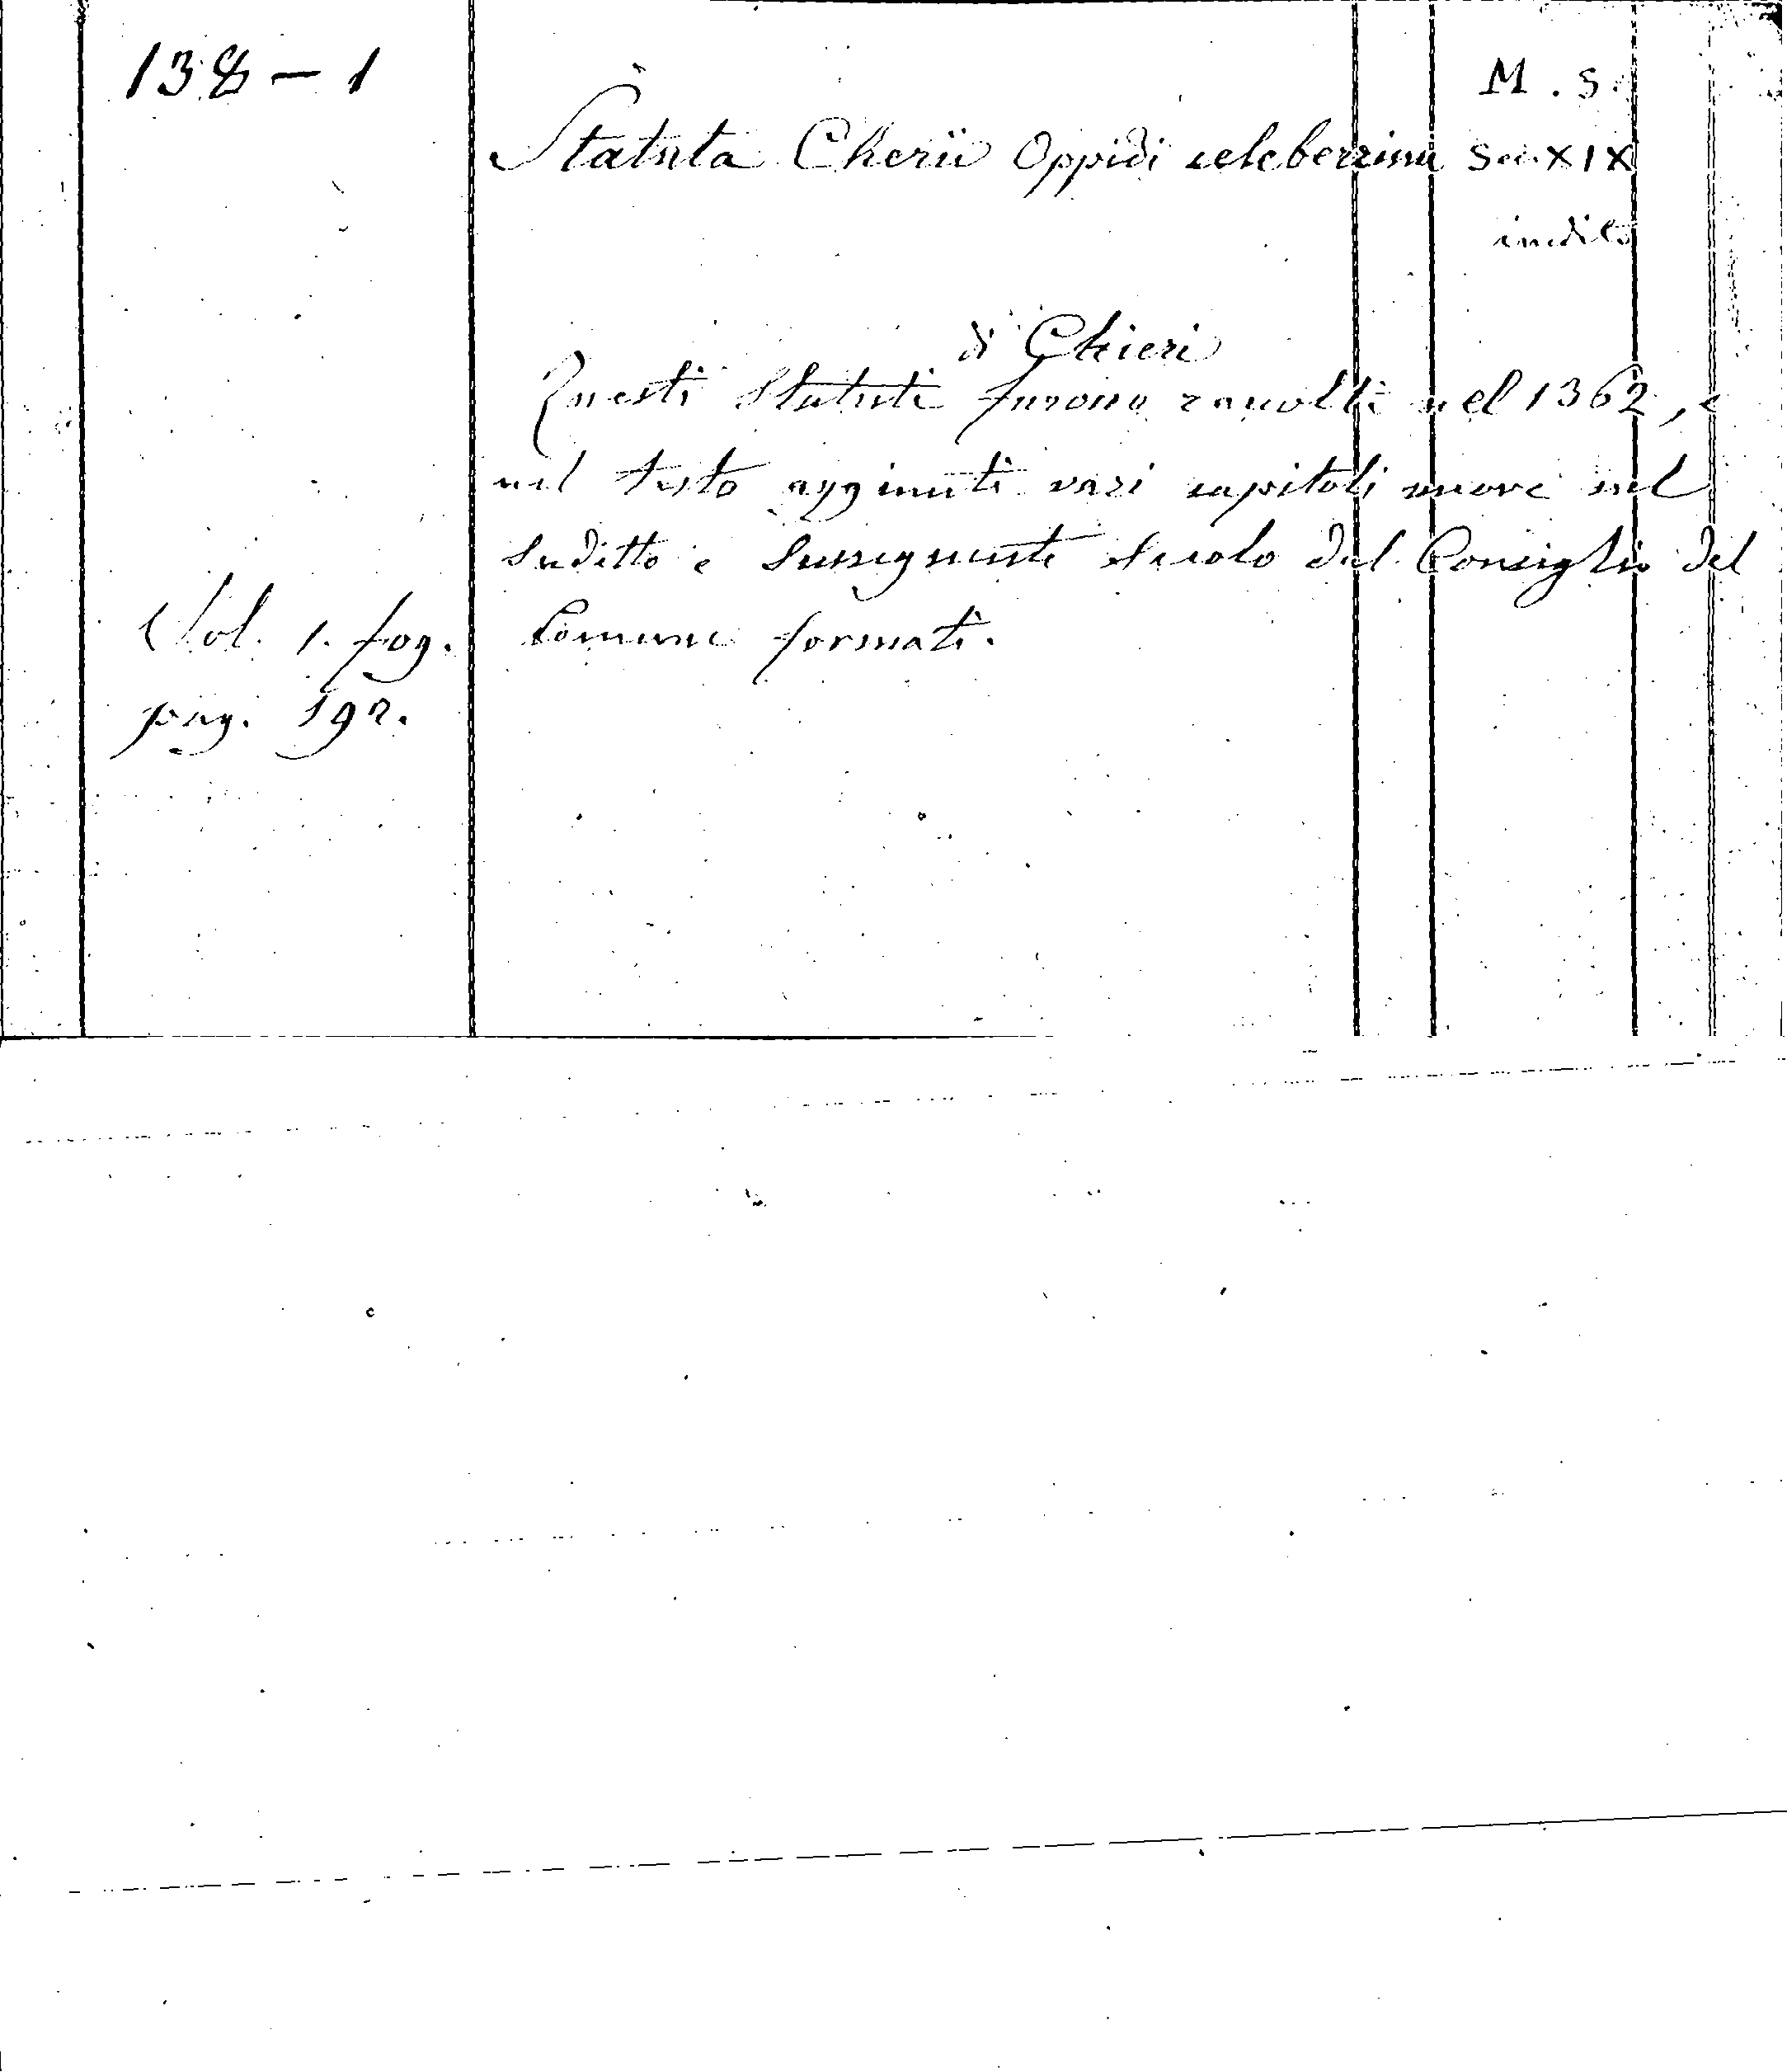 138 – 1
M. S.
Statuta Cherii Oppidi celeberrimi Sec. XIX
inedito
di Chieri
Questi Statuti furono raccolti nel 1362, e
nel testo aggiunti vari capitoli nuovi nel
sudetto e susseguente secolo dal Consiglio del
Comune formati.
Vol. 1. fog.
pag. 192.